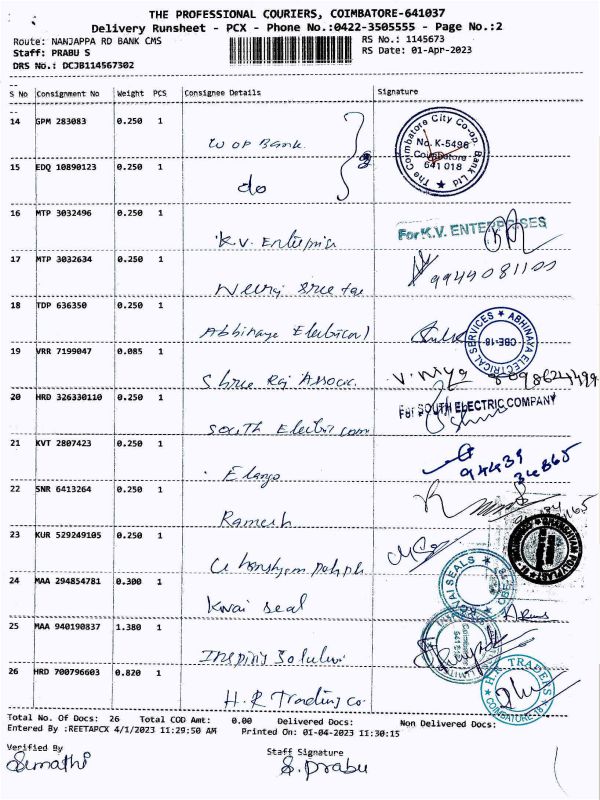 THE PROFESSIONAL COURIERS, COIMBATORE-641037
Delivery Runsheet - PCX - Phone No.:0422-3505555 - Page No.:2
Route: NANJAPPA RD BANK CMS
RS No.: 1145673
Staff: PRABU S
RS Date: 01-Apr-2023
DRS No.: DCJB114567302
S No Consignment No Weight PCS Consignee Details Signature
14 GPM 283083 0.250 1 Bank
The Coimbatore City Co-op. Bank Ltd
No. K-5496
Coimbatore
641 018
15 EDQ 10890123 0.250 1 do
16 MTP 3032496 0.250 1 K.V. Enterprise
For K.V. ENTERPRISES
17 MTP 3032634 0.250 1
18 TDP 636350 0.250 1 Abhinaya Electrical
ABHINAYA ELECTRICAL SERVICES
CBE-18
19 VRR 7199047 0.085 1 Shree Raj Assoc.
20 HRD 326330110 0.250 1 South Electric com
For SOUTH ELECTRIC COMPANY
21 KVT 2807423 0.250 1 Elango
94439
22 SNR 6413264 0.250 1 Ramesh
23 KUR 529249105 0.250 1
24 MAA 294854781 0.300 1 Kovai seal
KOVAI SEALS
25 MAA 940190837 1.380 1 Inspiring Solution
26 HRD 700796603 0.820 1 H.R Trading Co
H.R. TRADERS
COIMBATORE-18
Total No. Of Docs: 26 Total COD Amt: 0.00 Delivered Docs: Non Delivered Docs:
Entered By :REETAPCX 4/1/2023 11:29:50 AM Printed On: 01-04-2023 11:30:15
Verified By
Sumathi
Staff Signature
S. Prabu